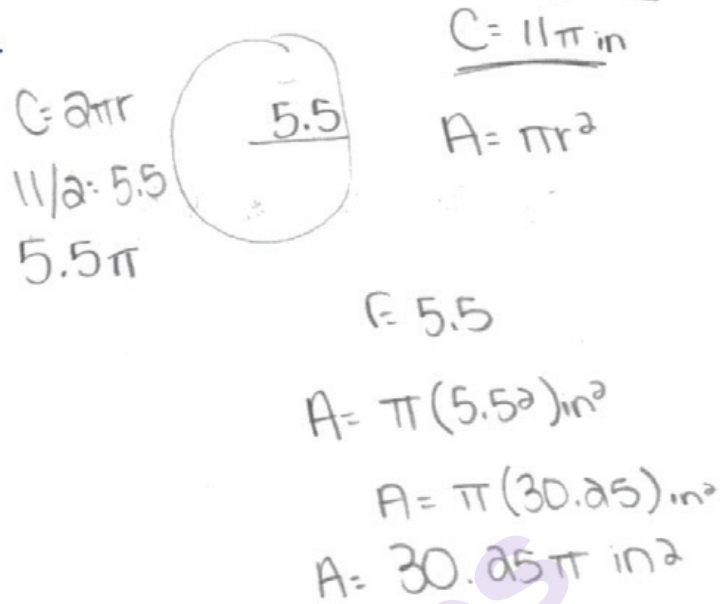 C = 2πr
11/2 = 5.5
5.5π
5.5
C = 11π in
A = πr²
r = 5.5
A = π(5.5²)in²
A = π(30.25)in²
A = 30.25π in²